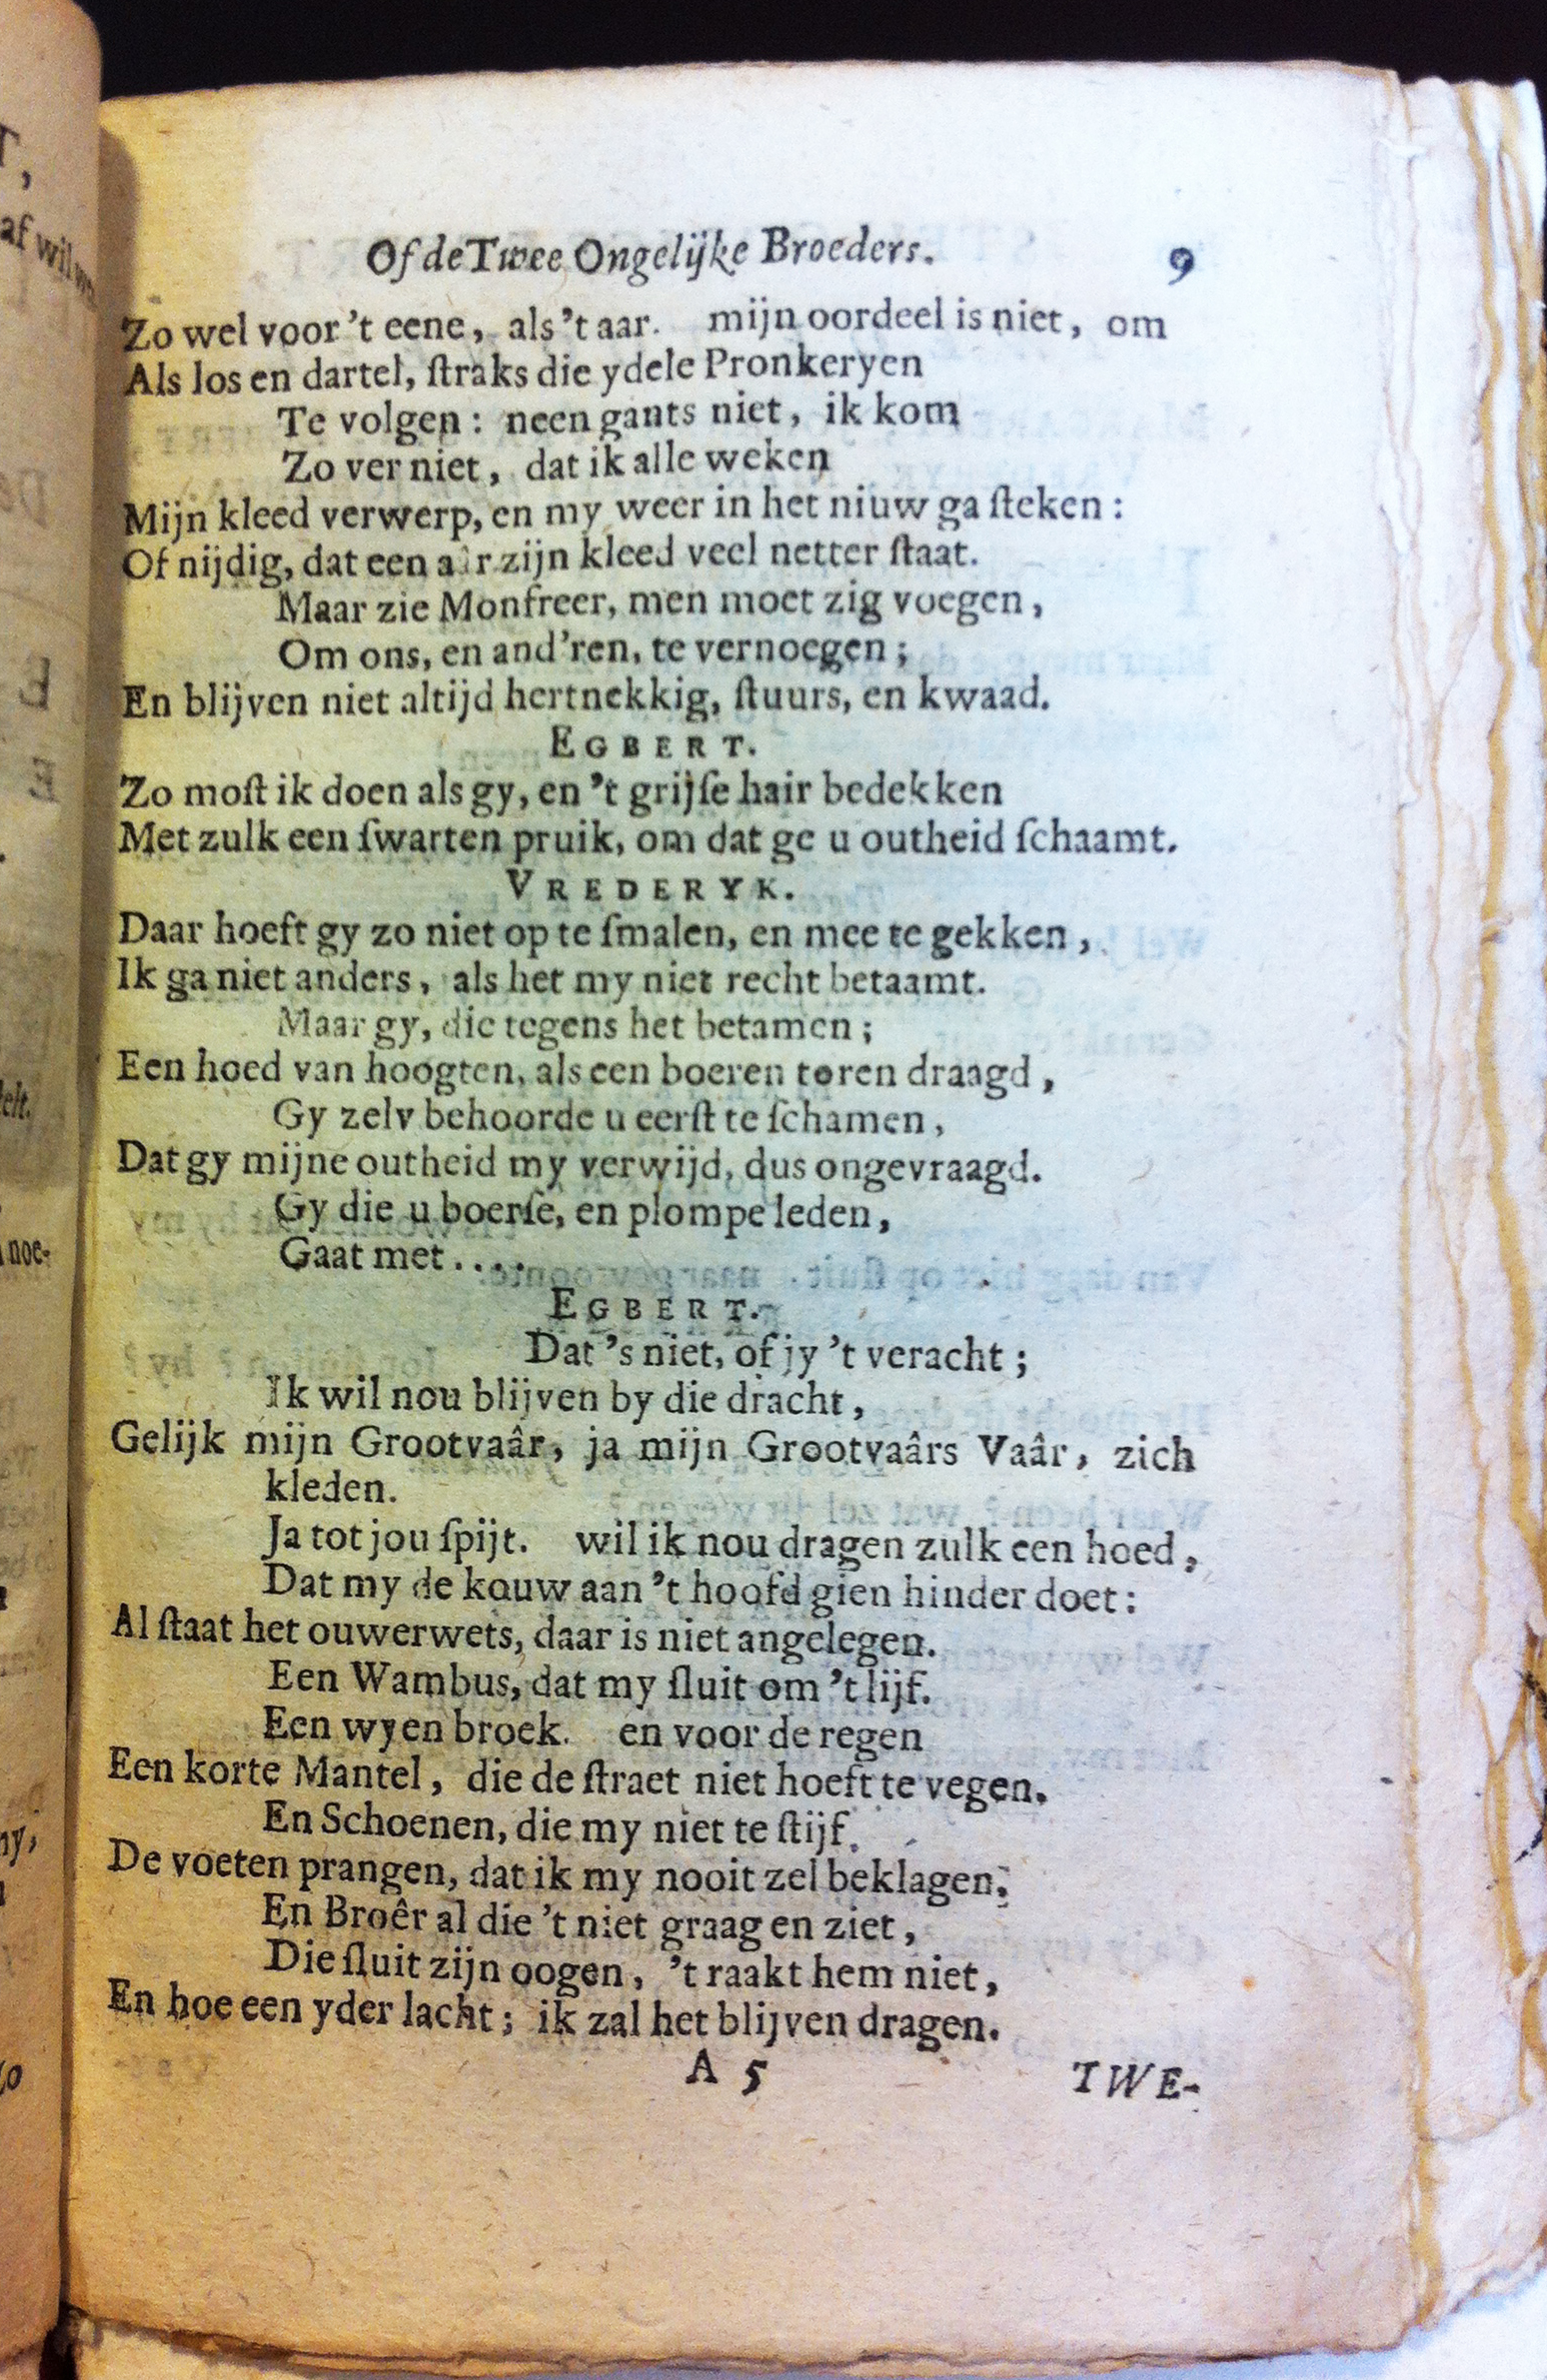 Of de Twee Ongelijke Broeders. 9
Zo wel voor 't eene, als 't aar. mijn oordeel is niet, om
Als los en dartel, ſtraks die ydele Pronkeryen
Te volgen: neen gants niet, ik kom
Zo ver niet, dat ik alle weken
Mijn kleed verwerp, en my weer in het niuw ga ſteken:
Of nijdig, dat een aar zijn kleed veel netter ſtaat.
Maar zie Monfreer, men moet zig voegen,
Om ons, en and'ren, te vernoegen;
En blijven niet altijd hertnekkig, ſtuurs, en kwaad.
EGBERT.
Zo moſt ik doen als gy, en 't grijſe hair bedekken
Met zulk een ſwarten pruik, om dat ge u outheid ſchaamt.
VREDERYK.
Daar hoeft gy zo niet op te ſmalen, en mee te gekken,
Ik ga niet anders, als het my niet recht betaamt.
Maar gy, die tegens het betamen;
Een hoed van hoogten, als een boeren toren draagd,
Gy zelv behoorde u eerſt te ſchamen,
Dat gy mijne outheid my verwijd, dus ongevraagd.
Gy die u boerſe, en plompe leden,
Gaat met....
EGBERT.
Dat 's niet, of jy 't veracht;
Ik wil nou blijven by die dracht,
Gelijk mijn Grootvaâr, ja mijn Grootvaârs Vaâr, zich
kleden.
Ja tot jou ſpijt. wil ik nou dragen zulk een hoed,
Dat my de kouw aan 't hoofd gien hinder doet:
Al ſtaat het ouwerwets, daar is niet angelegen.
Een Wambus, dat my ſluit om 't lijf.
Een wyen broek. en voor de regen
Een korte Mantel, die de ſtraet niet hoeft te vegen.
En Schoenen, die my niet te ſtijf.
De voeten prangen, dat ik my nooit zel beklagen.
En Broêr al die 't niet graag en ziet,
Die ſluit zijn oogen, 't raakt hem niet,
En hoe een yder lacht; ik zal het blijven dragen.
A 5 TWE-